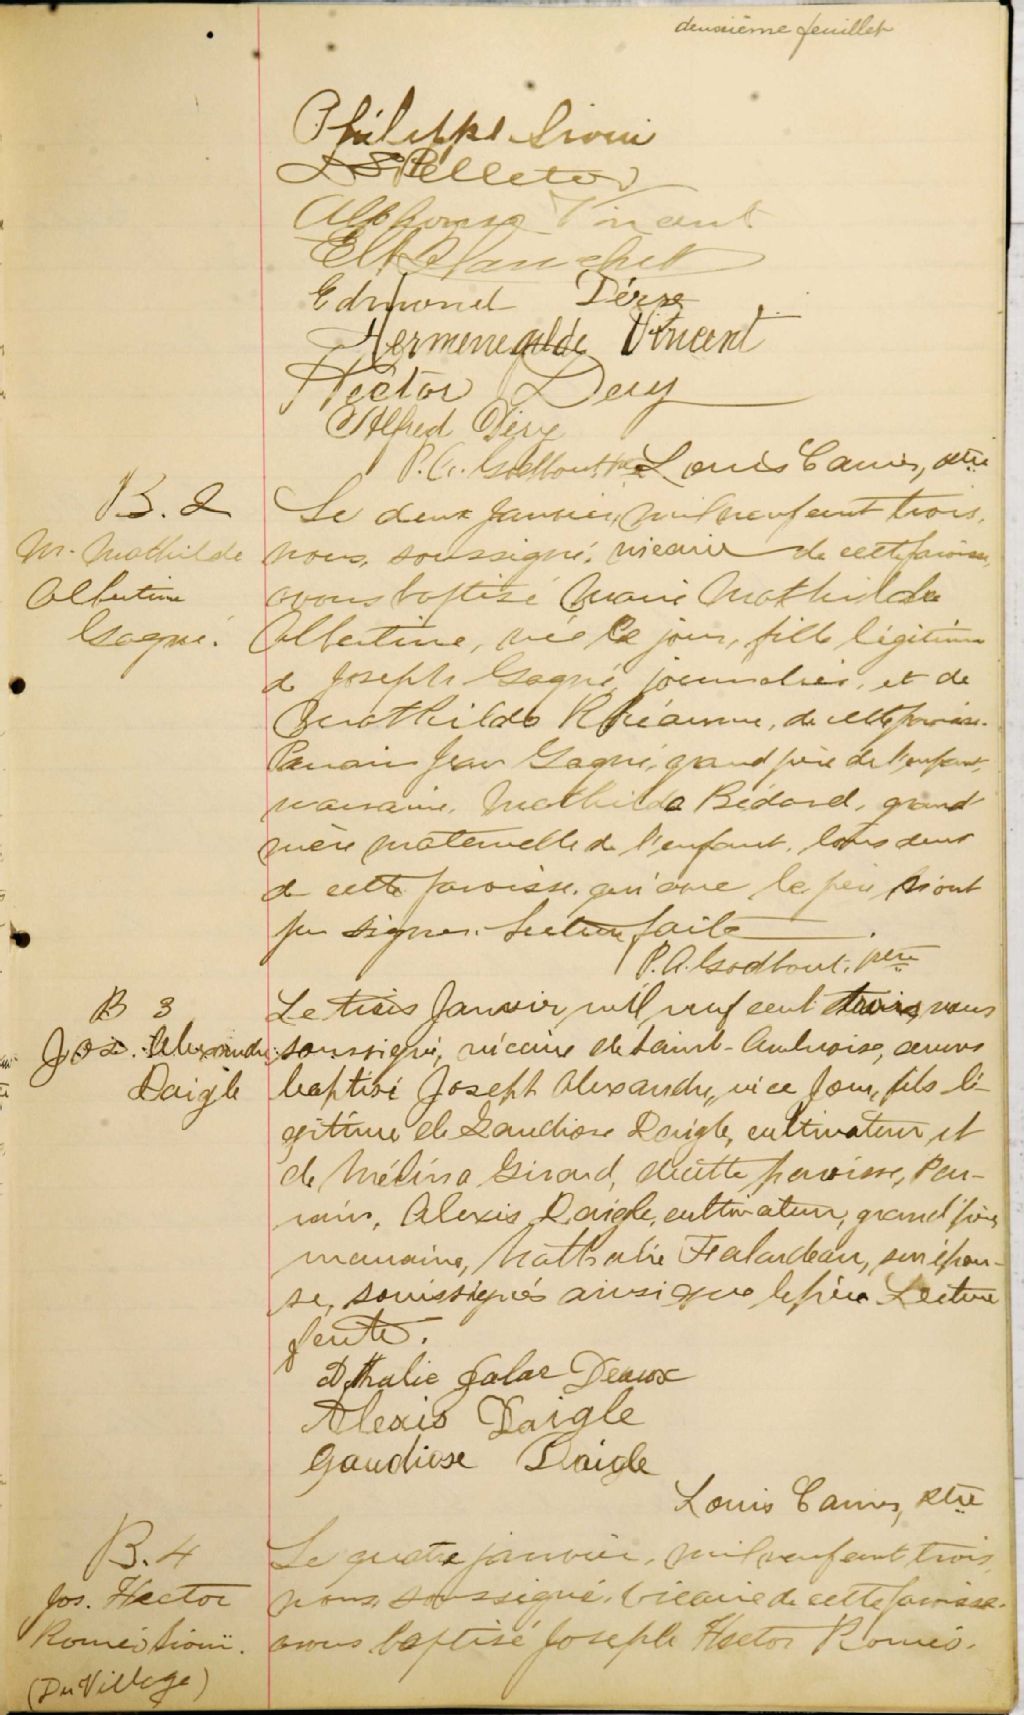 deuxième feuillet
Philippe Sioui
Pelletier
Alphonse Vincent
Blanchet
Edmond Déry
Hermenegilde Vincent
Hector Dery
Alfred Déry
P.A. Godbout ptre Louis Cannes, ptre
B. 2
M. Mathilde
Albertine
Gagné.
Le deux janvier, mil neuf cent trois,
nous, soussigné, vicaire de cette paroisse,
avons baptisé Marie Mathilde
Albertine, née ce jour, fille légitime
de Joseph Gagné, journalier, et de
Mathilde Rhéaume, de cette paroisse.
Parrain Jean Gagné, grand père de l'enfant,
marraine, Mathilda Bédard, grand
mère maternelle de l'enfant, tous deux
de cette paroisse, qui avec le père n'ont
pu signer. Lecture faite
P.A. Godbout, ptre
B 3
Jos. Alexandre
Daigle
Le trois Janvier mil neuf cent trois, nous
soussigné, vicaire de Saint-Ambroise, avons
baptisé Joseph Alexandre, né ce jour, fils lé-
gitime de Gaudiose Daigle, cultivateur, et
de Mélina Girard, de cette paroisse, Par-
rain, Alexis Daigle, cultivateur, grand'père
marraine, Nathalie Falardeau, son épou-
se, soussignés ainsi que le père. Lecture
faite.
Athalie Falar Deaux
Alexis Daigle
Gaudiose Daigle
Louis Cannes, ptre
B. 4
Jos. Hector
Roméo Sioui.
(Du Village)
Le quatre janvier, mil neuf cent trois,
nous soussigné, vicaire de cette paroisse
avons baptisé Joseph Hector Roméo.